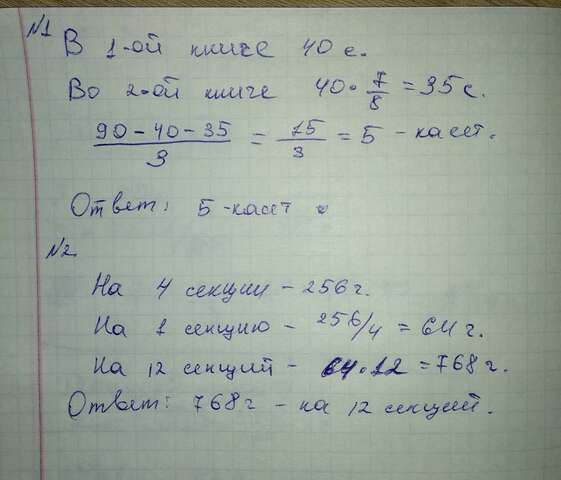 №1
В 1-ой книге 40 с.
Во 2-ой книге 40 · 7/8 = 35 с.
(90 - 40 - 35)/3 = 15/3 = 5 - касет.
Ответ: 5 - касет
№2
На 4 секции - 256 г.
На 1 секцию - 256/4 = 64 г.
На 12 секций - 64 · 12 = 768 г.
Ответ: 768 г - на 12 секций.